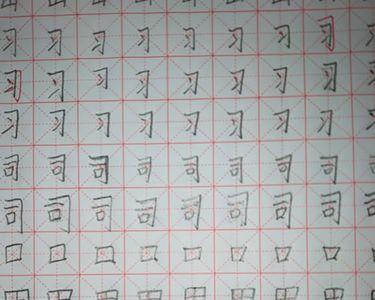 习 习 习 习 习 习 习 习
习 习 习 习 习 习 习 习
习 习 习 习 习 习 习 习
司 司 司 司 司 司 司 司
司 司 司 司 司 司 司 司
口 口 口 口 口 口 口 口